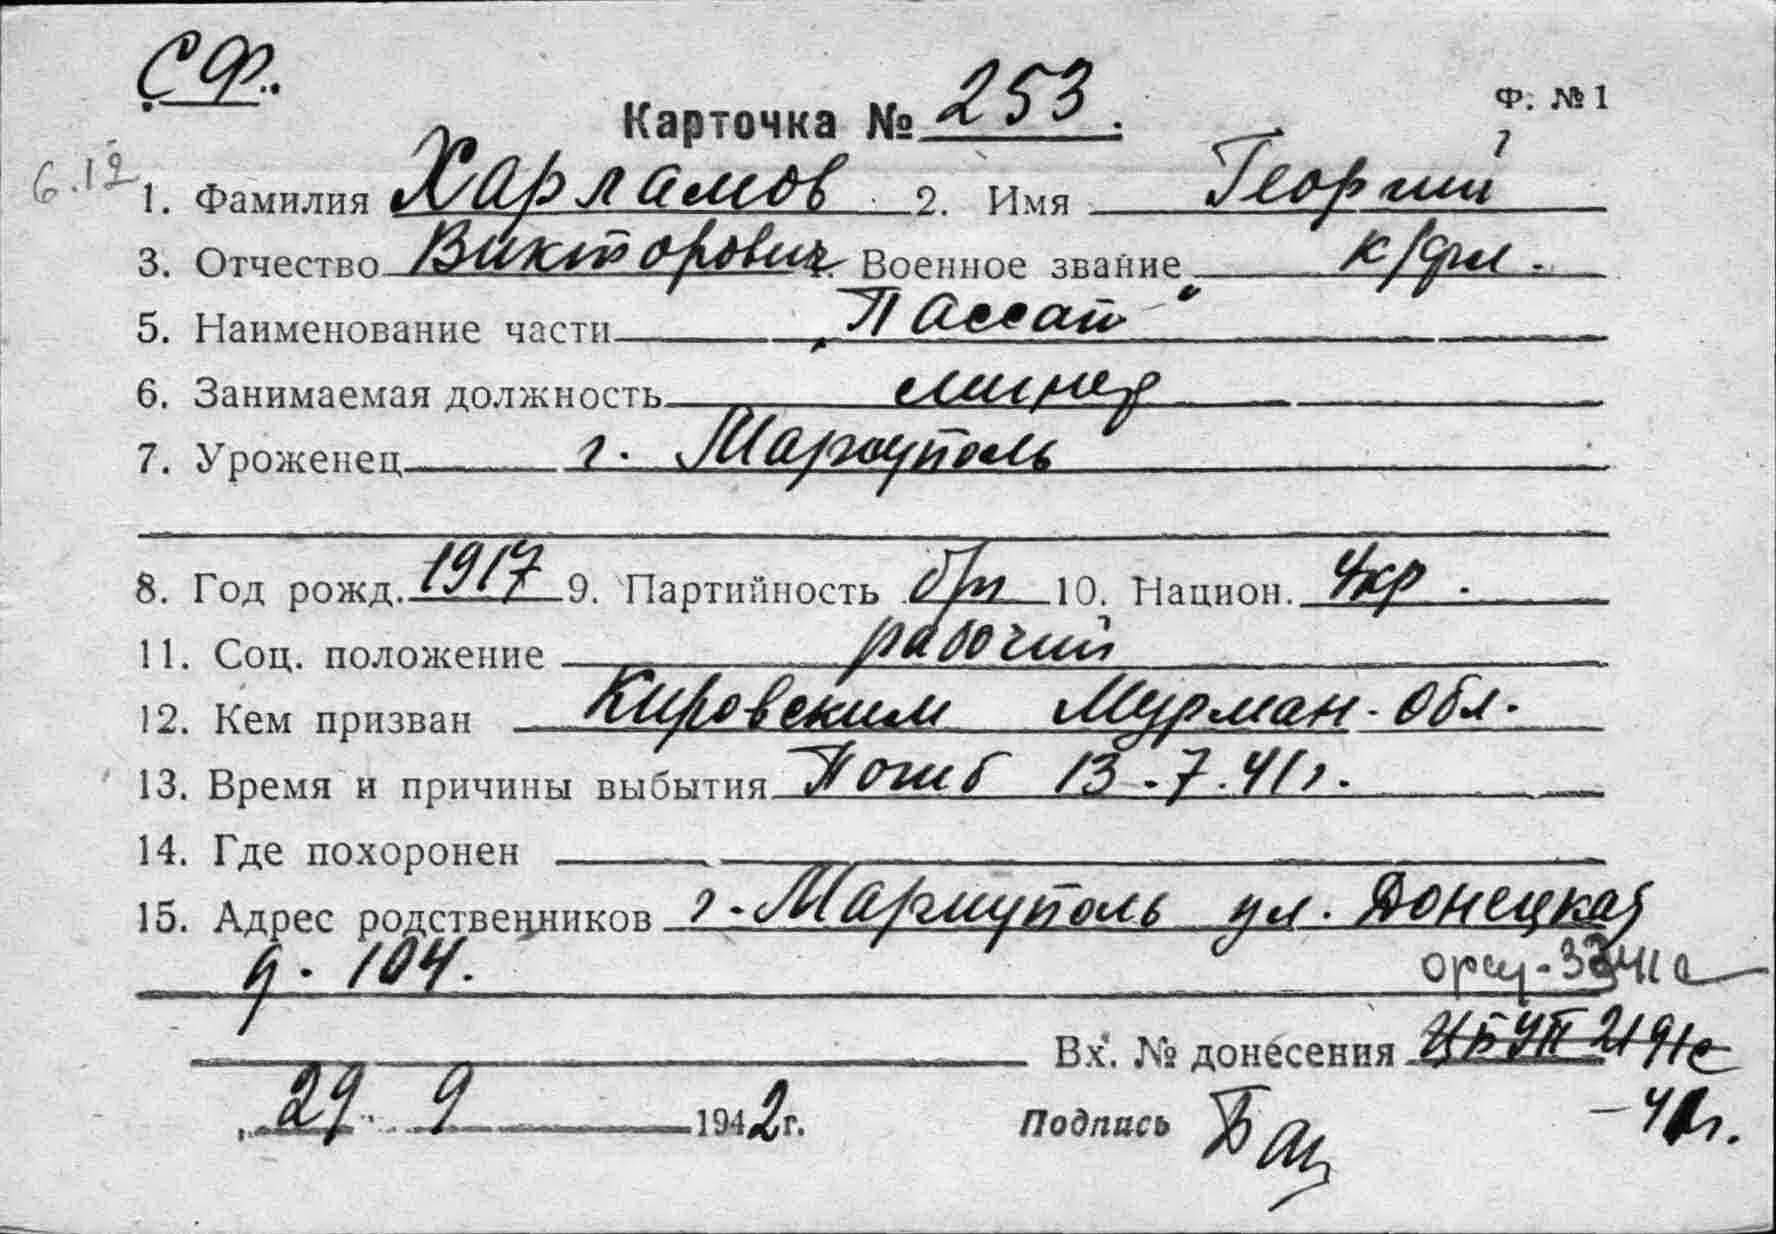 СФ.
Карточка № 253.
Ф. № 1
6.12
1. Фамилия Харламов 2. Имя Георгий
3. Отчество Викторович Военное звание к/фл.
5. Наименование части „Пассат“
6. Занимаемая должность минер
7. Уроженец г. Мариуполь
8. Год рожд. 1917 9. Партийность б/п 10. Национ. Укр.
11. Соц. положение рабочий
12. Кем призван Кировским Мурман. обл.
13. Время и причины выбытия Погиб 13.7.41г.
14. Где похоронен
15. Адрес родственников г. Мариуполь ул. Донецкая
д. 104.
Вх. № донесения ЦБУП 2191с
29 9 1942г. Подпись Бац
-41г.